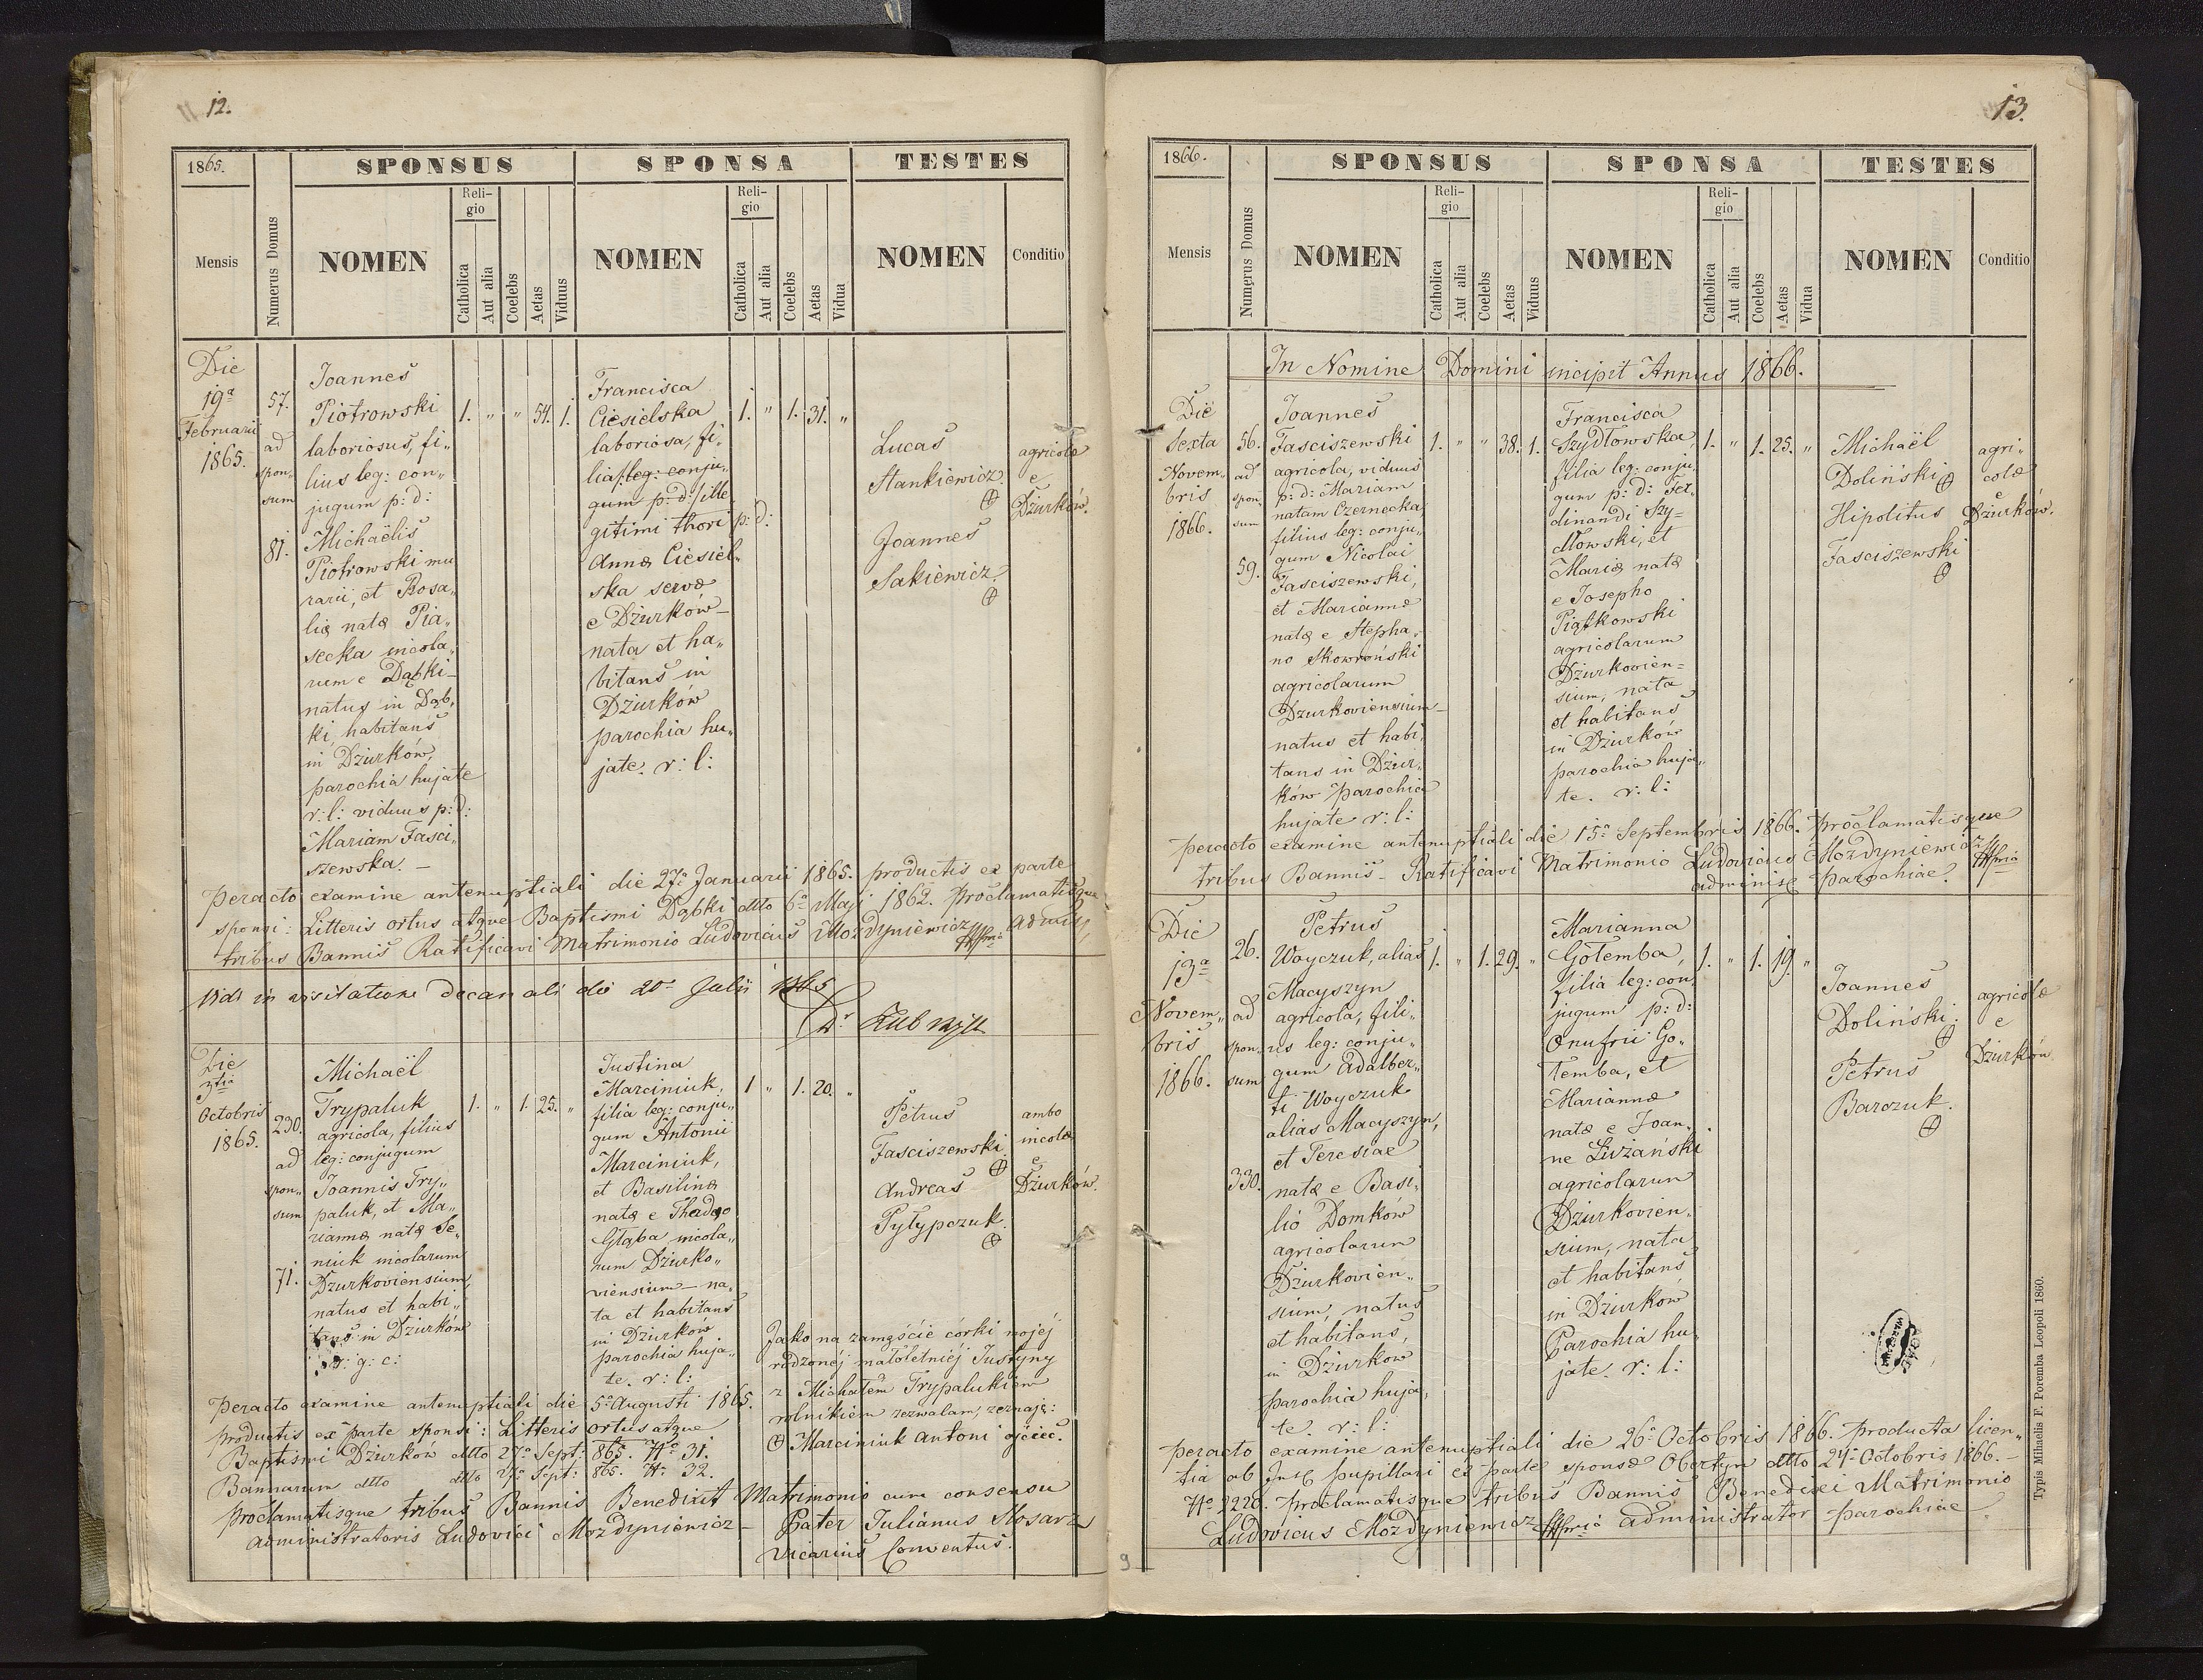 12.
1865.
SPONSUS
SPONSA
TESTES
Mensis
Numerus Domus
NOMEN
Reli-
gio
Catholica
Aut alia
Coelebs
Aetas
Viduus
NOMEN
Reli-
gio
Catholica
Aut alia
Coelebs
Aetas
Vidua
NOMEN
Conditio
Die
19a
Februarii
1865.
57.
ad
spon„
sum
81.
Joannes
Piotrowski
laboriosus, fi„
lius leg: con„
jugum p: d:
Michaëlis
Piotrowski mu
rarii, et Rosa„
liæ natæ Pia„
secka incola„
rum e Dąbki –
natus in Dąb„
ki, habitans
in Dżurków,
parochia hujate
r: l: viduus p: d:
Mariam Fasci„
szewska. –
1. „ „ 54. 1.
Francisca
Ciesielska
laboriosa, fi„
lia leg: conju„
gum p: d: ille„
gitimi thori p: d:
Annæ Ciesiel„
ska servæ
e Dżurków –
nata et ha„
bitans in
Dżurków
parochia hu„
jate. r: l:
1. „ 1. 31. „
Lucas
Stankiewicz.
Joannes
Sakiewicz.
agricolæ
e
Dżurków.
Peracto examine antenuptiali die 27a Januarii 1865. productis ex parte
sponsi: Litteris ortus atque Baptismi Dąbki dtto 6a Maji 1862. Proclamatisque
tribus Bannis Ratificavi Matrimonio Ludovicus Mozdyniewicz
Vidi in visitatione decanali die 20a Julii 1865
Die
3tia
Octobris
1865.
230.
ad
spon„
sum
71.
Michaël
Trypaluk
agricola, filius
leg: conjugum
Joannis Try„
paluk, et Ma„
riannæ natæ Se„
niuk incolarum
Dżurkoviensium,
natus et habi„
tans in Dżurków
r: g: c:
1. „ 1. 25. „
Justina
Marciniuk,
filia leg: conju„
gum Antonii
Marciniuk,
et Basilinæ
natæ e Thadæo
Głąba incola„
rum Dżurko„
viensium – na„
ta et habitans
in Dżurków
parochia huja„
te. r: l:
1 „ 1. 20. „
Petrus
Fasciszewski.
Andreas
Pyłypczuk.
ambo
incolæ
e
Dżurków.
Jako na zamęście córki mojéj
rodzonéj małoletniéj Justyny
z Michałem Trypalukiem
rolnikiem zezwalam, zeznaję:
Marciniuk Antoni ojciec.
Peracto examine antenuptiali die 5a Augusti 1865.
productis ex parte sponsi: Litteris ortus atque
Baptismi Dżurków dtto 27a Sept: 865. No 31.
Bannarum dtto dtto 27a Sept: 865. No 32.
Proclamatisque tribus Bannis Benedixit Matrimonio cum consensu
administratoris Ludovici Mozdyniewicz – Pater Julianus Slosarz
vicarius Conventus.
13.
1866.
SPONSUS
SPONSA
TESTES
Mensis
Numerus Domus
NOMEN
Reli-
gio
Catholica
Aut alia
Coelebs
Aetas
Viduus
NOMEN
Reli-
gio
Catholica
Aut alia
Coelebs
Aetas
Vidua
NOMEN
Conditio
In Nomine Domini incipit Annus 1866.
Die
Sexta
Novem„
bris
1866.
56.
ad
spon„
sum
59.
Joannes
Fasciszewski
agricola, viduus
p: d: Mariam
natam Czernecka,
filius leg: conju„
gum Nicolai
Fasciszewski,
et Mariannæ
natæ e Stepha„
no Skowroński
agricolarum
Dżurkoviensium –
natus et habi„
tans in Dżur„
ków Parochia
hujate r: l:
1. „ „ 38. 1.
Francisca
Szydłowska,
filia leg: conju„
gum p: d: Fer„
dinandi Szy=
dłowski, et
Mariæ natæ
e Josepho
Piątkowski
agricolarum
Dżurkovien=
sium, nata
et habitans
in Dżurków
parochia huja„
te. r: l:
1. „ 1. 25. „
Michaël
Doliński
Hipolitus
Fasciszewski
agri„
colæ
e
Dżurków.
Peracto examine antenuptiali die 15a Septembris 1866. Proclamatisque
tribus Bannis – Ratificavi Matrimonio Ludovicus Mozdyniewicz
parochiae.
Die
13a
Novem„
bris
1866.
26.
ad
spon„
sum
330.
Petrus
Woyczuk, alias
Macyszyn
agricola, fili„
us leg: conju„
gum Adalber„
ti Woyczuk
alias Macyszyn,
et Teresiae
natæ e Basi„
lio Domków
agricolarum
Dżurkovien„
sium, natus
et habitans,
in Dżurków
parochia huja„
te. r: l:
1. „ 1. 29. „
Marianna
Gołemba,
filia leg: con„
jugum p: d:
Onufrii Go„
łemba, et
Mariannæ
natæ e Joan„
ne Liszański
agricolarum
Dżurkovien„
sium, nata
et habitans
in Dżurków
Parochia hu„
jate. r: l:
1. „ 1. 19. „
Joannes
Doliński.
Petrus
Barczuk.
agricolæ
e
Dżurków.
Peracto examine antenuptiali die 26a Octobris 1866. producta licen„
tia ab pupillari ex parte sponsæ Obertyn dtto 24a Octobris 1866. –
No 2226. Proclamatisque tribus Bannis Benedixi Matrimonio
Ludovicus Mozdyniewicz administrator parochiae.
Typis Mihaelis F. Poremba Leopoli 1860.
9